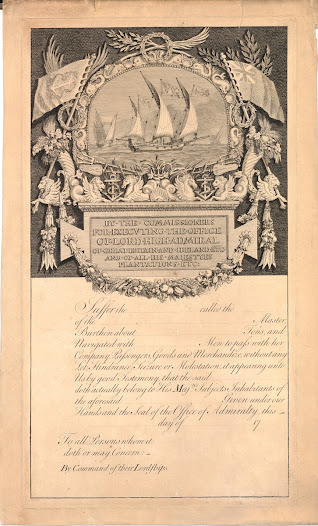 BY·THE·COMMISSIONERS
FOR·EXECVTING·THE·OFFICE
OF·LORD·HIGH·ADMIRAL
OF·GREAT·BRITAIN·AND·IRELAND·&c
AND·OF·ALL·HIS·MAJESTYS
PLANTATIONS·&c
Suffer the called the
of the Master,
Burthen about Tons, and
Navigated with Men to pass with her
Company, Passengers, Goods and Merchandize, without any
Let, Hindrance, Seizure or Molestation, it appearing unto
Us by good Testimony, that the said
doth actually belong to His Majtys. Subjects Inhabitants of
the aforesaid Given under our
Hands and the Seal of the Office of Admiralty, this
day of 17
To all Persons whom it
doth or may Concern:
By Command of their Lordships